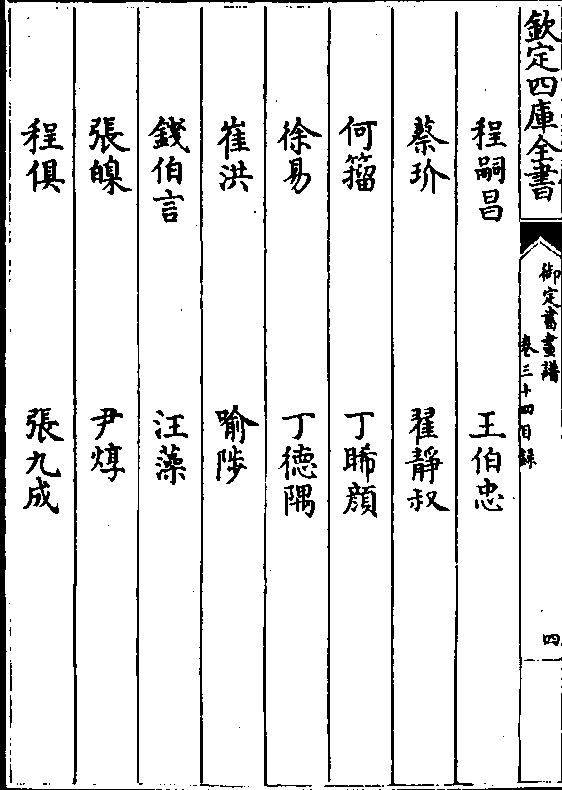 欽定四庫全書
御定書畫譜
卷三十四目録
四
程嗣昌 王伯忠
蔡玠 翟靜叔
何籀 丁晞顔
徐易 丁德隅
崔洪 喻陟
錢伯言 汪藻
張嵲 尹焞
程俱 張九成